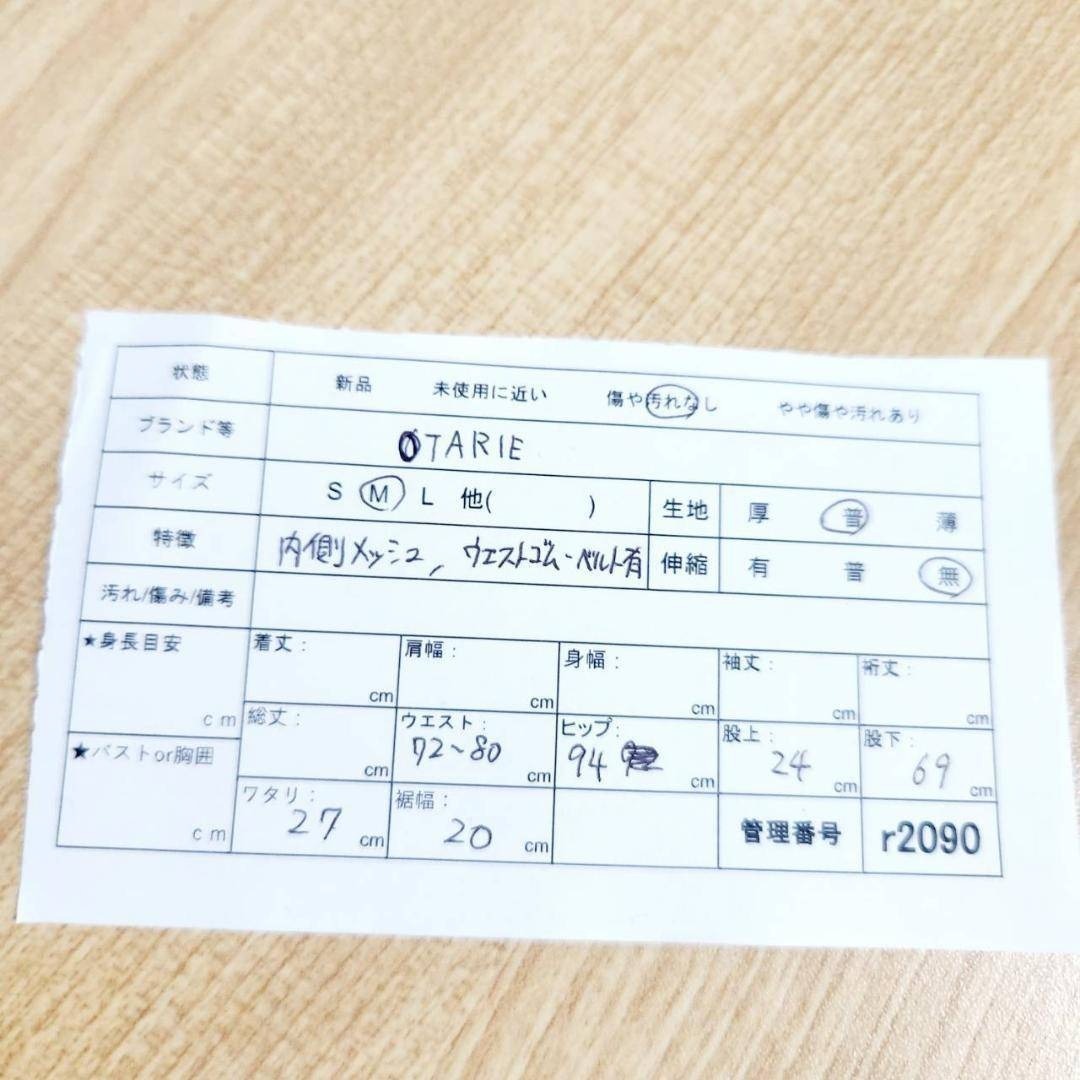 状態 新品 未使用に近い 傷や汚れなし やや傷や汚れあり
ブランド等 OTARIE
サイズ S M L 他( ) 生地 厚 普 薄
特徴 内側メッシュ, ウエストゴム・ベルト有 伸縮 有 普 無
汚れ/傷み/備考
★身長目安 cm 着丈: cm 肩幅: cm 身幅: cm 袖丈: cm 裄丈: cm
総丈: cm ウエスト: 72~80 cm ヒップ: 94 cm 股上: 24 cm 股下: 69 cm
★バストor胸囲 cm
ワタリ: 27 cm 裾幅: 20 cm 管理番号 r2090